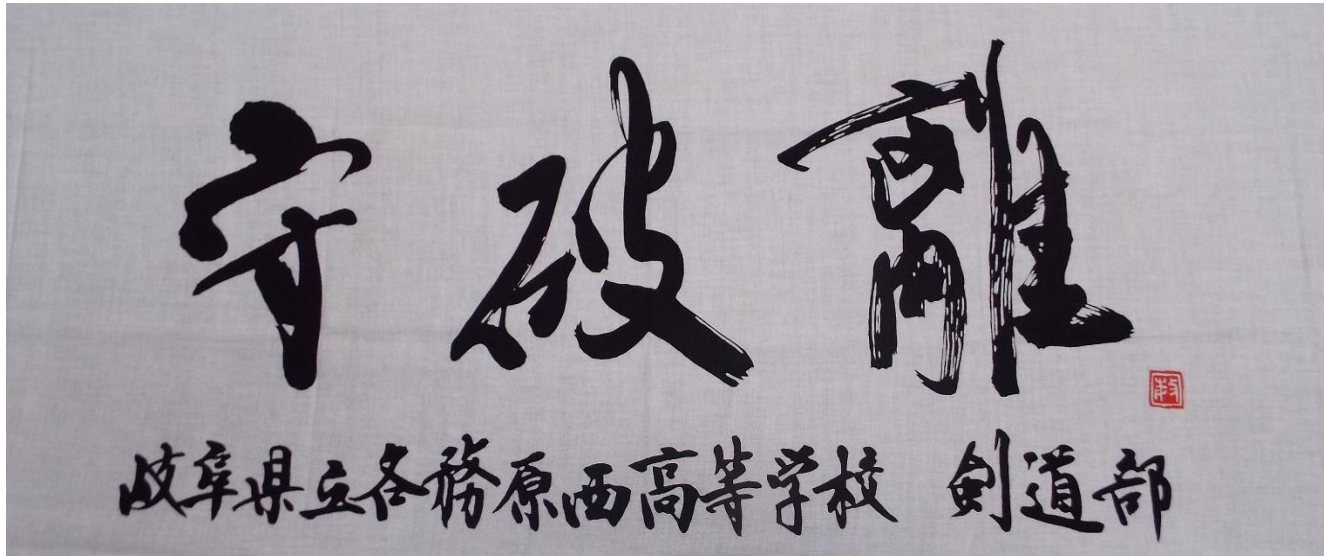 守破離
岐阜県立各務原西高等学校 剣道部